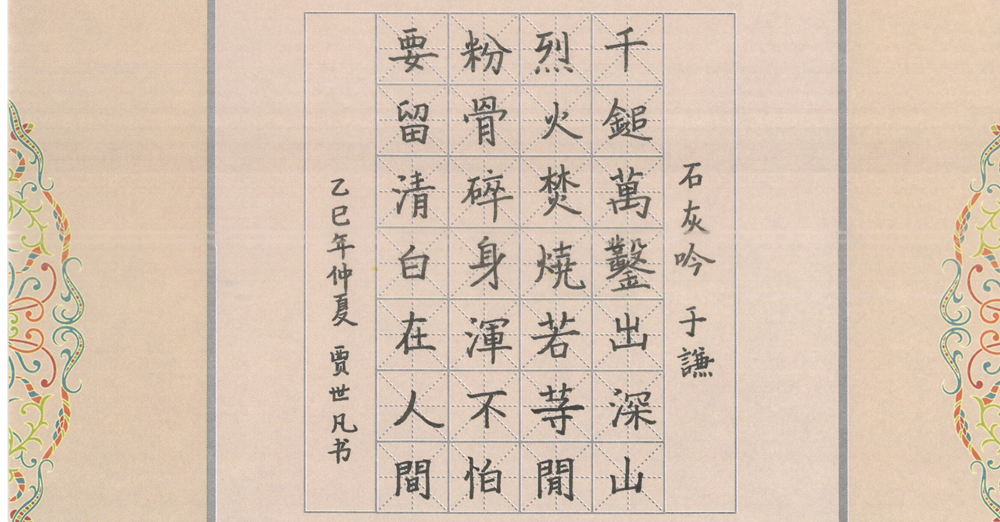 石灰吟 于謙
千鎚萬鑿出深山
烈火焚燒若等閒
粉骨碎身渾不怕
要留清白在人間
乙巳年仲夏 贾世凡书